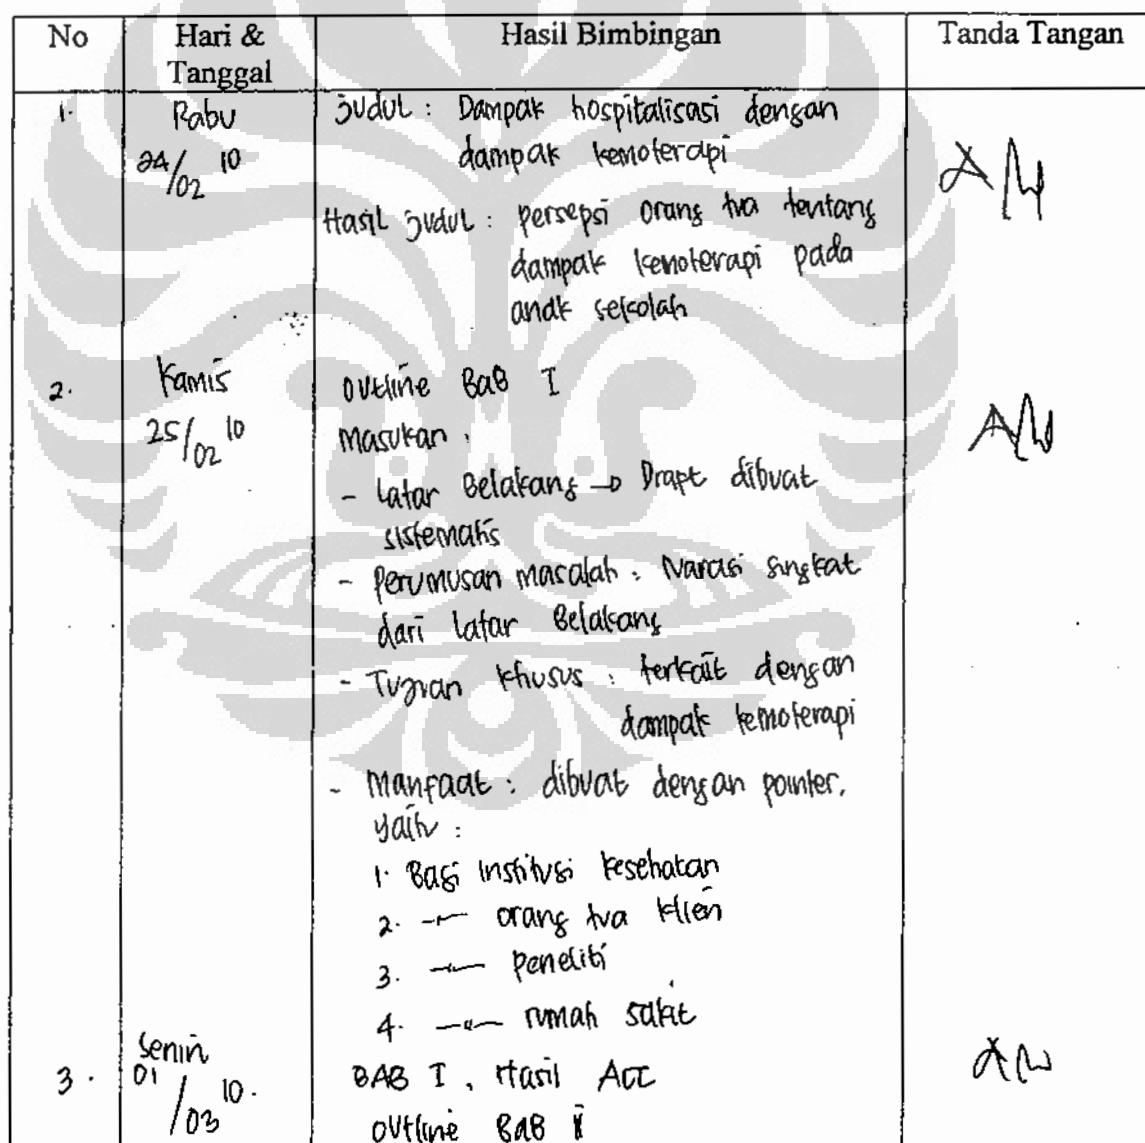 No Hari & Tanggal Hasil Bimbingan Tanda Tangan
1. Rabu 24/02 10
Judul : Dampak hospitalisasi dengan
dampak kemoterapi
Hasil Judul : persepsi orang tua tentang
dampak kemoterapi pada
anak sekolah
2. Kamis 25/02 10
Outline BAB I
Masukan :
- Latar Belakang → Drapt dibuat
sistematis
- Perumusan masalah : Narasi singkat
dari latar Belakang
- Tujuan khusus : terkait dengan
dampak kemoterapi
- Manfaat : dibuat dengan pointer.
yaitu :
1. Bagi institusi kesehatan
2. —"— orang tua klien
3. —"— peneliti
4. —"— rumah sakit
3. Senin 01/03 10.
BAB I, Hasil Acc
Outline BAB II